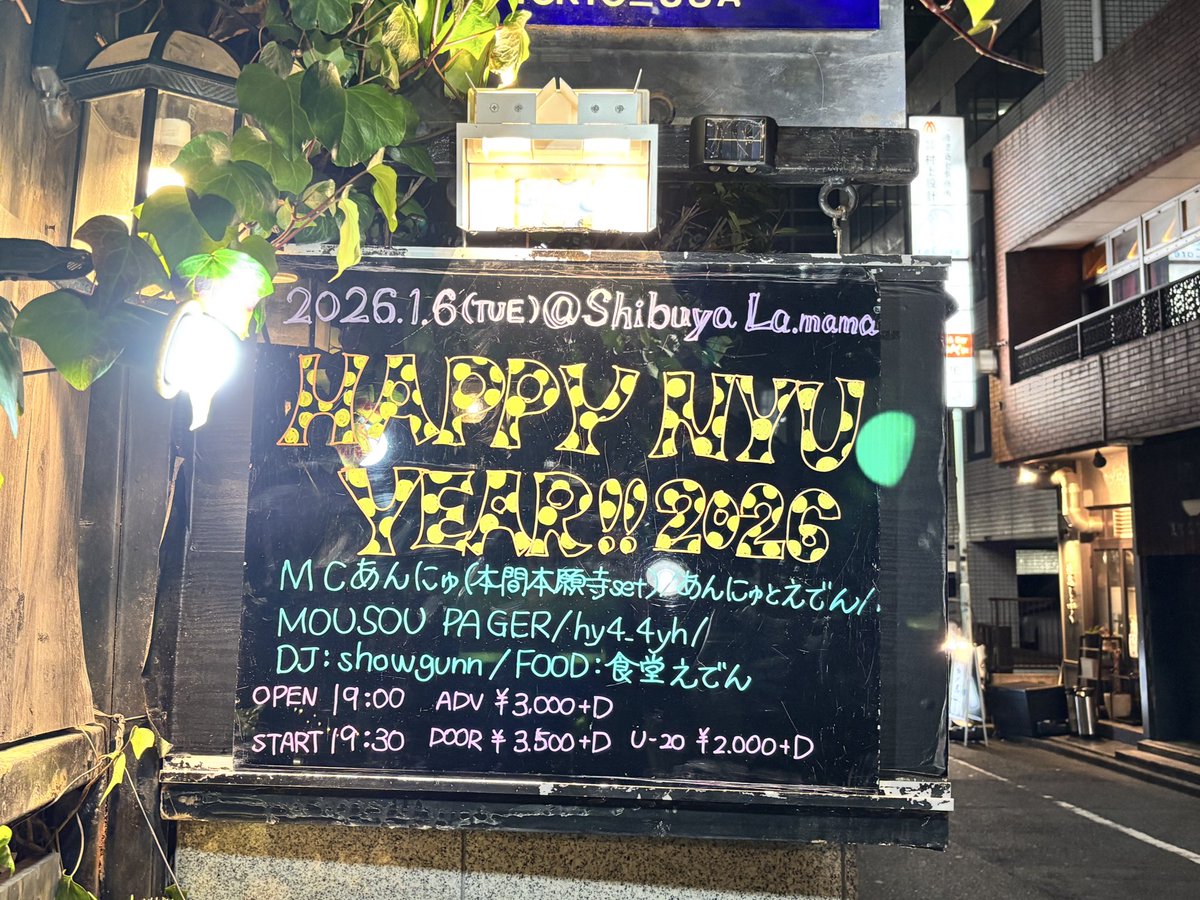 2026.1.6(TUE)@Shibuya La.mama
HAPPY NYU
YEAR!! 2026
MCあんにゅ(本間本願寺set)/あんにゅとえでん/
MOUSOU PAGER/hy4_4yh/
DJ:showgunn/FOOD:食堂えでん
OPEN 19:00 ADV ¥3.000+D
START 19:30 DOOR ¥3.500+D U-20 ¥2.000+D